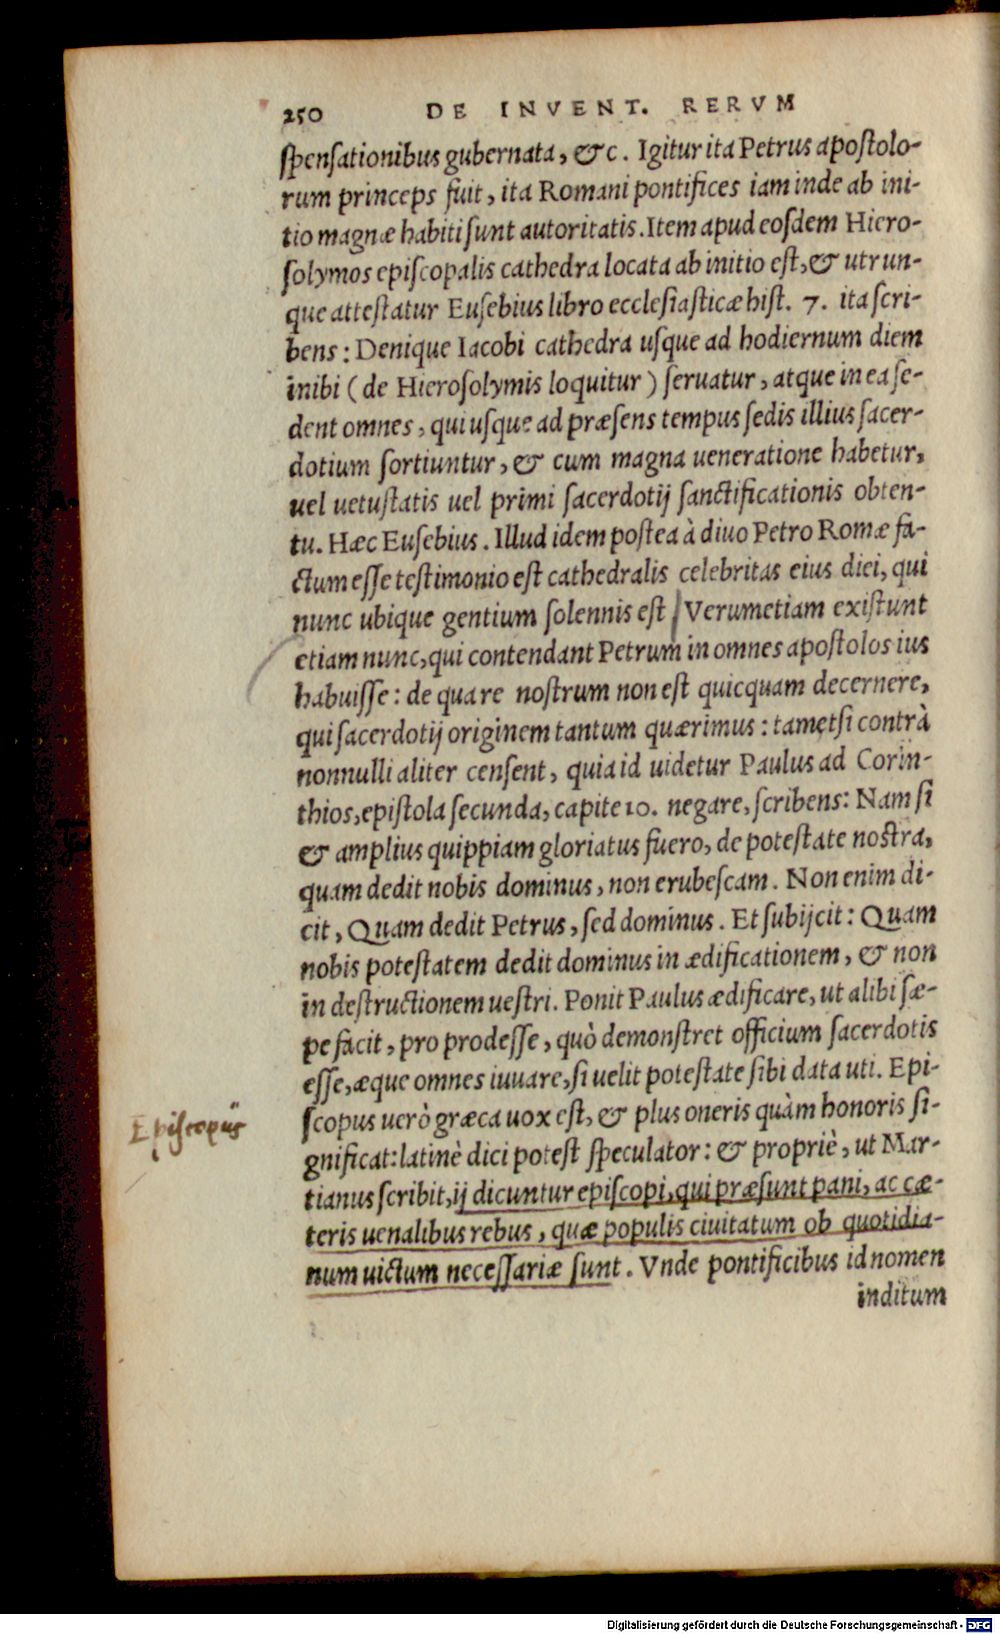 250 DE INVENT. RERVM
ſpenſationibus gubernata, &c. Igitur ita Petrus apoſtolo-
rum princeps fuit, ita Romani pontifices iam inde ab ini-
tio magnæ habiti ſunt autoritatis. Item apud eoſdem Hiero-
ſolymos epiſcopalis cathedra locata ab initio eſt, & utrun-
que atteſtatur Euſebius libro eccleſiaſticæ hiſt. 7. ita ſcri-
bens: Denique Iacobi cathedra uſque ad hodiernum diem
inibi (de Hieroſolymis loquitur) ſeruatur, atque in ea ſe-
dent omnes, qui uſque ad præſens tempus ſedis illius ſacer-
dotium ſortiuntur, & cum magna ueneratione habetur,
uel uetuſtatis uel primi ſacerdotij ſanctificationis obten-
tu. Hæc Euſebius. Illud idem poſtea à diuo Petro Romæ fa-
ctum eſſe teſtimonio eſt cathedralis celebritas eius diei, qui
nunc ubique gentium ſolennis eſt Verumetiam exiſtunt
etiam nunc, qui contendant Petrum in omnes apoſtolos ius
habuiſſe: de qua re noſtrum non eſt quicquam decernere,
qui ſacerdotij originem tantum quærimus: tametſi contrà
nonnulli aliter cenſent, quia id uidetur Paulus ad Corin-
thios, epiſtola ſecunda, capite 10. negare, ſcribens: Nam ſi
& amplius quippiam gloriatus fuero, de poteſtate noſtra,
quam dedit nobis dominus, non erubeſcam. Non enim di-
cit, Quam dedit Petrus, ſed dominus. Et ſubijcit: Quam
nobis poteſtatem dedit dominus in ædificationem, & non
in deſtructionem ueſtri. Ponit Paulus ædificare, ut alibi ſæ-
pe facit, pro prodeſſe, quò demonſtret officium ſacerdotis
eſſe, æque omnes iuuare, ſi uelit poteſtate ſibi data uti. Epi-
ſcopus uerò græca uox eſt, & plus oneris quàm honoris ſi-
Epiſcopus
gnificat: latinè dici poteſt ſpeculator: & propriè, ut Mar-
tianus ſcribit, ij dicuntur epiſcopi, qui præſunt pani, ac cæ-
teris uenalibus rebus, quæ populis ciuitatum ob quotidia-
num uictum neceſſariæ ſunt. Vnde pontificibus id nomen
inditum
Digitalisierung gefördert durch die Deutsche Forschungsgemeinschaft - DFG